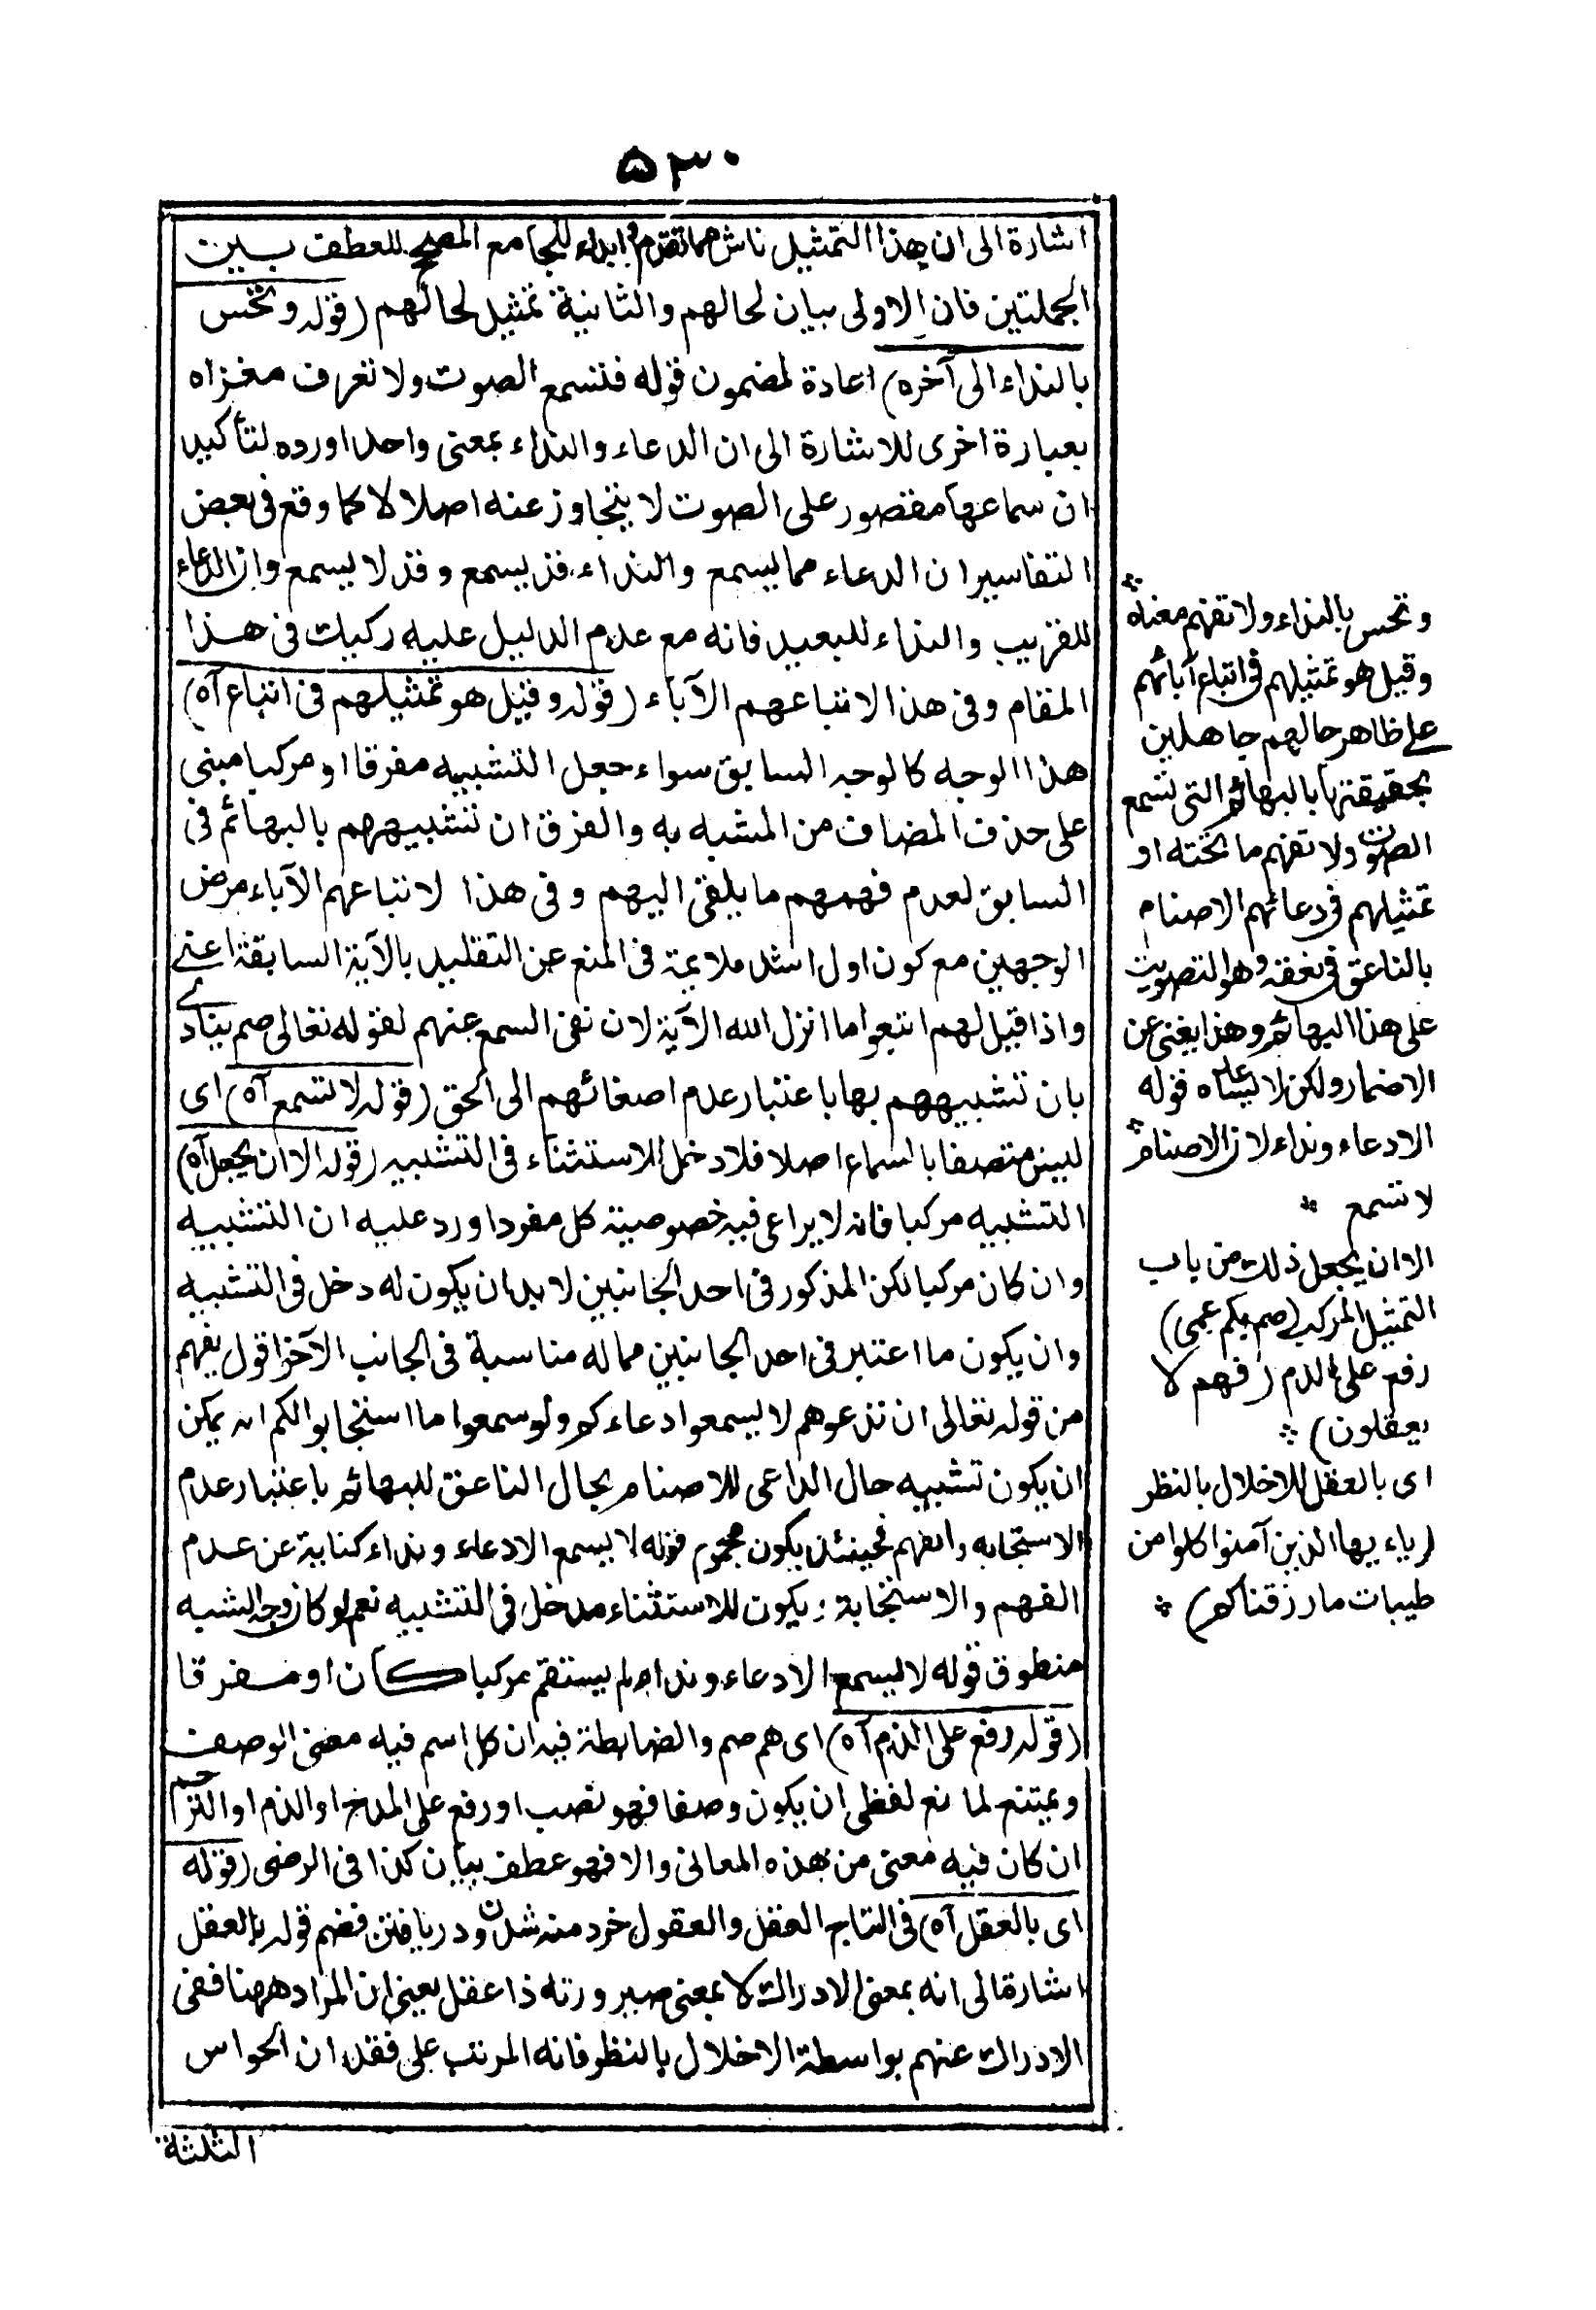 ۵۳۰
اشارة الى ان هذا التمثيل ناش مما تقدم ابداء للجامع المصحح للعطف بين
الجملتين فان الاولى بيان لحالهم والثانية تمثيل لحالهم (قوله وتحس
بالنداء الى آخره) اعادة لمضمون قوله فتسمع الصوت ولا تعرف مغزاه
بعبارة اخرى للاشارة الى ان الدعاء والنداء بمعنى واحد اورده لتأكيد
ان سماعها مقصور على الصوت لا يتجاوز عنه اصلا لا كما وقع فى بعض
التفاسير ان الدعاء مما يسمع والنداء قد يسمع وقد لا يسمع وان الدعاء
للقريب والنداء للبعيد فانه مع عدم الدليل عليه ركيك فى هذا
المقام وفى هذا الاتباعهم الآباء (قوله وقيل هو تمثيلهم فى اتباع آه)
هذا الوجه كالوجه السابق سواء جعل التشبيه مفرقا او مركبا مبنى
على حذف المضاف من المشبه به والفرق ان تشبيههم بالبهائم فى
السابق لعدم فهمهم ما يلقى اليهم وفى هذا لاتباعهم الآباء مرض
الوجهين مع كون اول اشد ملايمة فى المنع عن التقليد بالآية السابقة اعنى
واذا قيل لهم اتبعوا ما انزل الله الآية لان نفى السمع عنهم لقوله تعالى صم ينادى
بان تشبيههم بها باعتبار عدم اصغائهم الى الحق (قوله لا تسمع آه) اى
ليس متصفا بالسماع اصلا فلا دخل للاستثناء فى التشبيه (قوله الا ان يجعل آه)
التشبيه مركبا فانه لا يراعى فيه خصوصية كل مفرد اورد عليه ان التشبيه
وان كان مركبا لكن المذكور فى احد الجانبين لا بد ان يكون له دخل فى التشبيه
وان يكون ما اعتبر فى احد الجانبين مما له مناسبة فى الجانب الآخر اقول يفهم
من قوله تعالى ان تدعوهم لا يسمعوا دعاءكم ولو سمعوا ما استجابوا لكم انه يمكن
ان يكون تشبيه حال الداعى للاصنام بحال الناعق للبهائم باعتبار عدم
الاستجابه والفهم فحينئذ يكون مجموع قوله لا يسمع الا دعاء ونداء كناية عن عدم
الفهم والاستجابة ويكون للاستثناء مدخل فى التشبيه نعم لو كان وجه الشبه
منطوق قوله لا يسمع الا دعاء ونداء لم يستقم مركبا كان او مفرقا
(قوله رفع على الذم آه) اى هم صم والضابطة فيه ان كل اسم فيه معنى الوصف
ويمتنع لمانع لفظى ان يكون وصفا فهو نصب او رفع على المدح او الذم او الترحم
ان كان فيه معنى من هذه المعانى والا فهو عطف بيان كذا فى الرضى (قوله
اى بالعقل آه) فى التاج العقل والعقول خردمند شدن ودريافتن فضم قوله بالعقل
اشارة الى انه بمعنى الادراك لا بمعنى صيرورته ذا عقل يعنى ان المراد ههنا نفى
الادراك عنهم بواسطة الاخلال بالنظر فانه المرتب على فقدان الحواس
الثلثة
وتحس بالنداء ولا تفهم معناه
وقيل هو تمثيلهم فى اتباع آبائهم
على ظاهر حالهم جاهلين
بحقيقتها بالبهائم التى تسمع
الصوت ولا تفهم ما تحته او
تمثيلهم فى دعائهم الاصنام
بالناعق فى نعقه وهو التصويت
على هذا البهائم وهذا يغنى عن
الاضمار ولكن لا يساعده قوله
الا دعاء ونداء لان الاصنام
لا تسمع
الا ان يجعل ذلك من باب
التمثيل المركب (صم بكم عمى)
رفع على الذم (فهم لا
يعقلون)
اى بالعقل للاخلال بالنظر
(ياءيها الذين آمنوا كلوا من
طيبات ما رزقناكم)